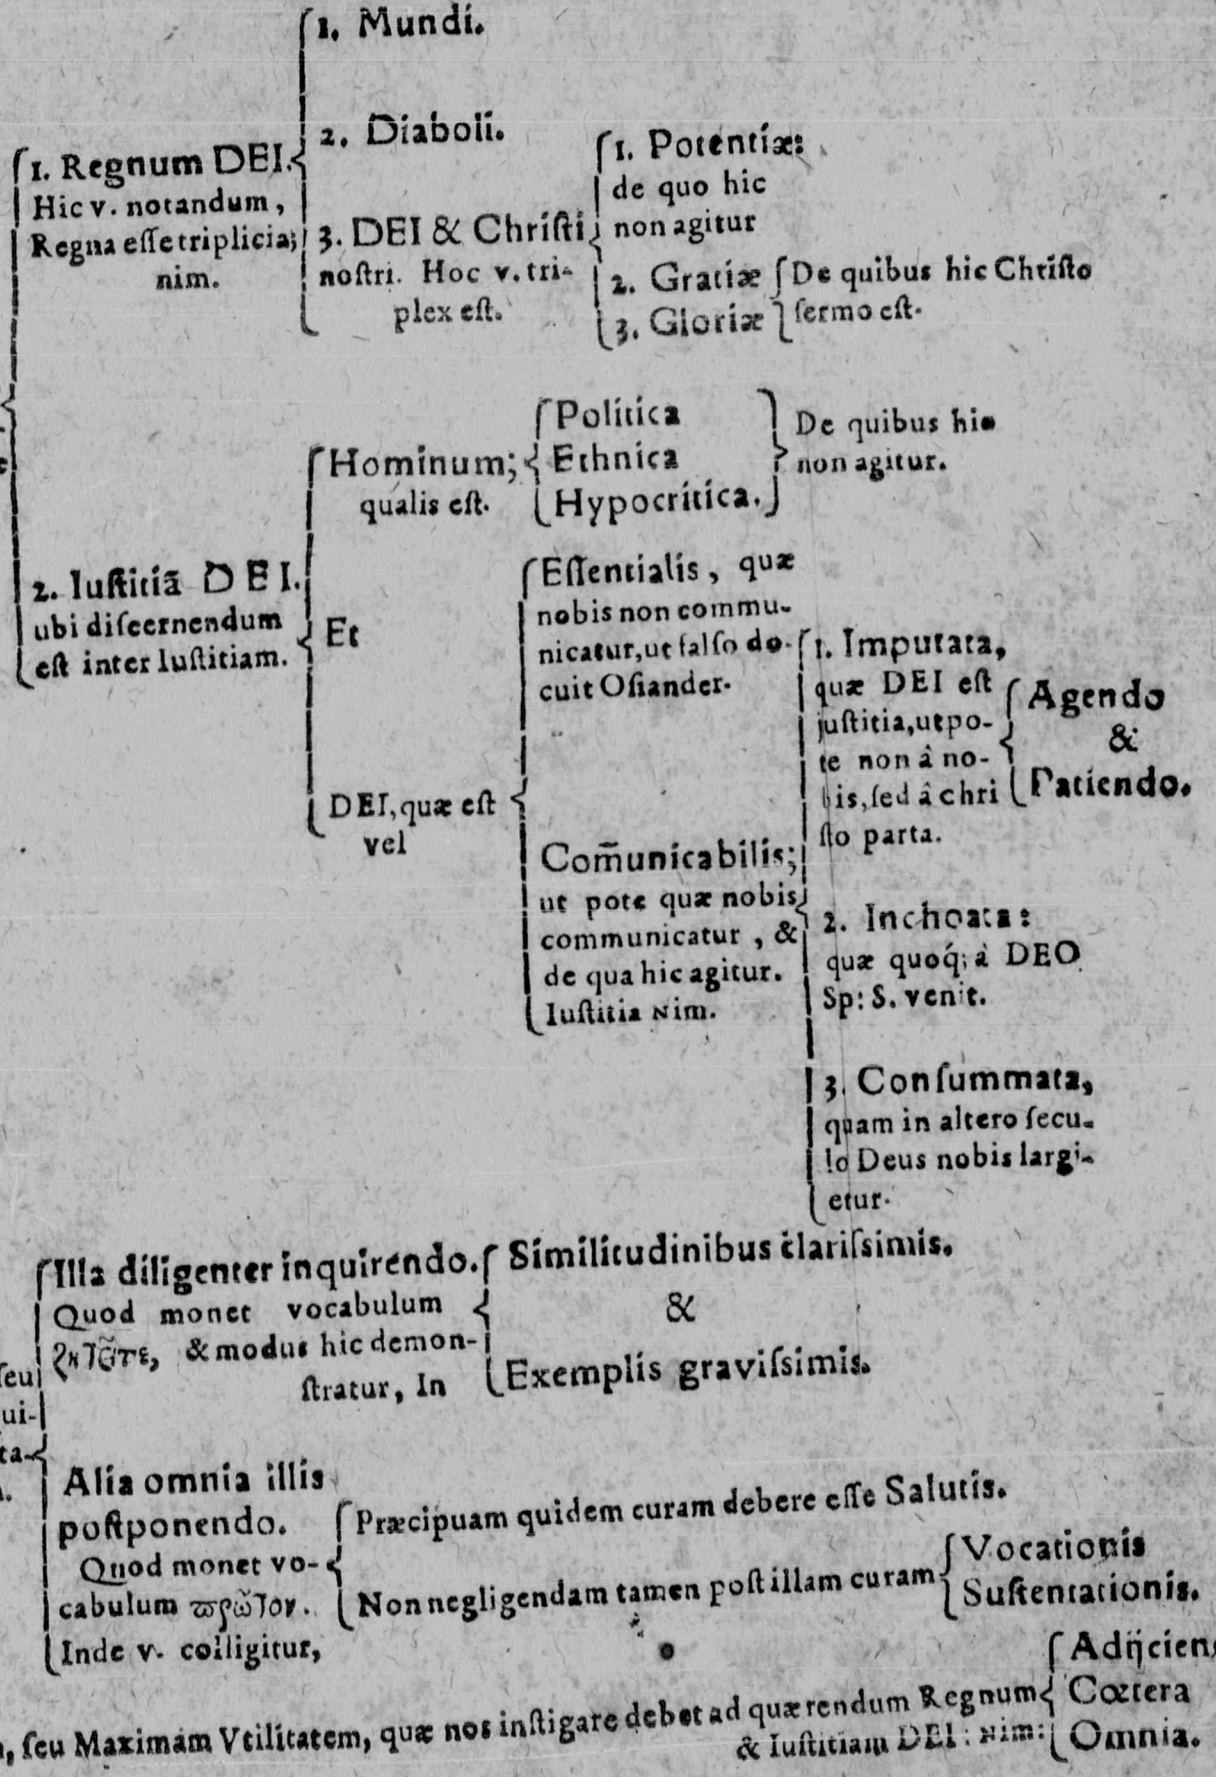 1. Mundi.
2. Diaboli.
1. Regnum DEI.
Hic v. notandum,
Regna eſſe triplicia;
nim.
3. DEI & Chriſti
noſtri. Hoc v. tri-
plex eſt.
1. Potentiæ:
de quo hic
non agitur
2. Gratiæ
3. Gloriæ
De quibus hic Chriſto
ſermo eſt.
Hominum;
qualis eſt.
Politica
Ethnica
Hypocritica.
De quibus hic
non agitur.
2. Iuſtitiã DEI.
ubi diſcernendum
eſt inter Iuſtitiam.
Et
DEI, quæ eſt
vel
Eſſentialis, quæ
nobis non commu-
nicatur, ut falſo do-
cuit Oſiander.
Com̃unicabilis;
ut pote quæ nobis
communicatur, &
de qua hic agitur.
Iuſtitia Nim.
1. Imputata,
quæ DEI eſt
juſtitia, utpo-
te non â no-
bis, ſed â chri
ſto parta.
Agendo
&
Patiendo.
2. Inchoata:
quæ quoq́; à DEO
Sp: S. venit.
3. Conſummata,
quam in altero ſecu-
lo Deus nobis largi-
etur.
Illa diligenter inquirendo.
Quod monet vocabulum
ζητεῖτε, & modus hic demon-
ſtratur, In
Similitudinibus clariſsimis.
&
Exemplis graviſsimis.
ſeu
ui-
ta-
Alia omnia illis
poſtponendo.
Quod monet vo-
cabulum πρῶτον.
Inde v. colligitur,
Præcipuam quidem curam debere eſſe Salutis.
Non negligendam tamen poſt illam curam
Vocationis
Suſtentationis.
, ſeu Maximam Vtilitatem, quæ nos inſtigare debet ad quærendum Regnum
& Iuſtitiam DEI: Nim:
Adijcien
Cœtera
Omnia.